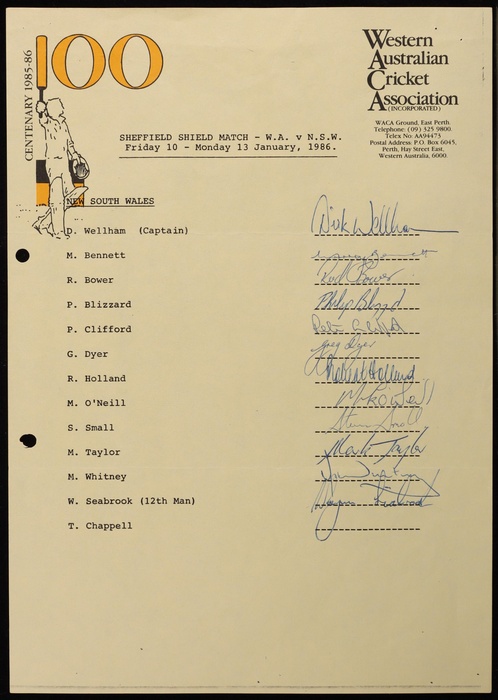 CENTENARY 1985-86
100
Western
Australian
Cricket
Association
(INCORPORATED)
WACA Ground, East Perth.
Telephone: (09) 325 9800.
Telex No: AA94473
Postal Address: P.O. Box 6045,
Perth, Hay Street East,
Western Australia, 6000.
SHEFFIELD SHIELD MATCH - W.A. v N.S.W.
Friday 10 - Monday 13 January, 1986.
NEW SOUTH WALES
D. Wellham (Captain) Dirk Wellham
M. Bennett Murray Bennett
R. Bower Rod Bower
P. Blizzard Philip Blizzard
P. Clifford Peter Clifford
G. Dyer Greg Dyer
R. Holland Robert Holland
M. O'Neill M O'Neill
S. Small Steve Small
M. Taylor Mark Taylor
M. Whitney
W. Seabrook (12th Man) Wayne Seabrook
T. Chappell